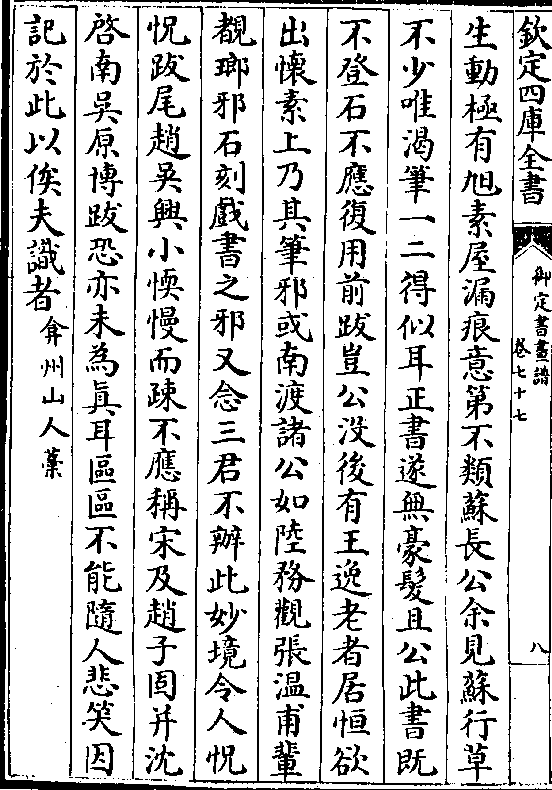 欽定四庫全書
御定書畫譜
卷七十七
八
生動極有旭素屋漏痕意第不類蘇長公余見蘇行草
不少唯渴筆一二得似耳正書遂無豪髮且公此書既
不登石不應復用前跋豈公没後有王逸老者居恒欲
出懷素上乃其筆邪或南渡諸公如陸務觀張溫甫輩
覩瑯邪石刻戲書之邪又念三君不辦此妙境令人怳
怳跋尾趙吳興小愞慢而疎不應稱宋及趙子固并沈
啓南吳原博跋恐亦未為眞耳區區不能隨人悲笑因
記於此以俟夫識者弇州山人藳